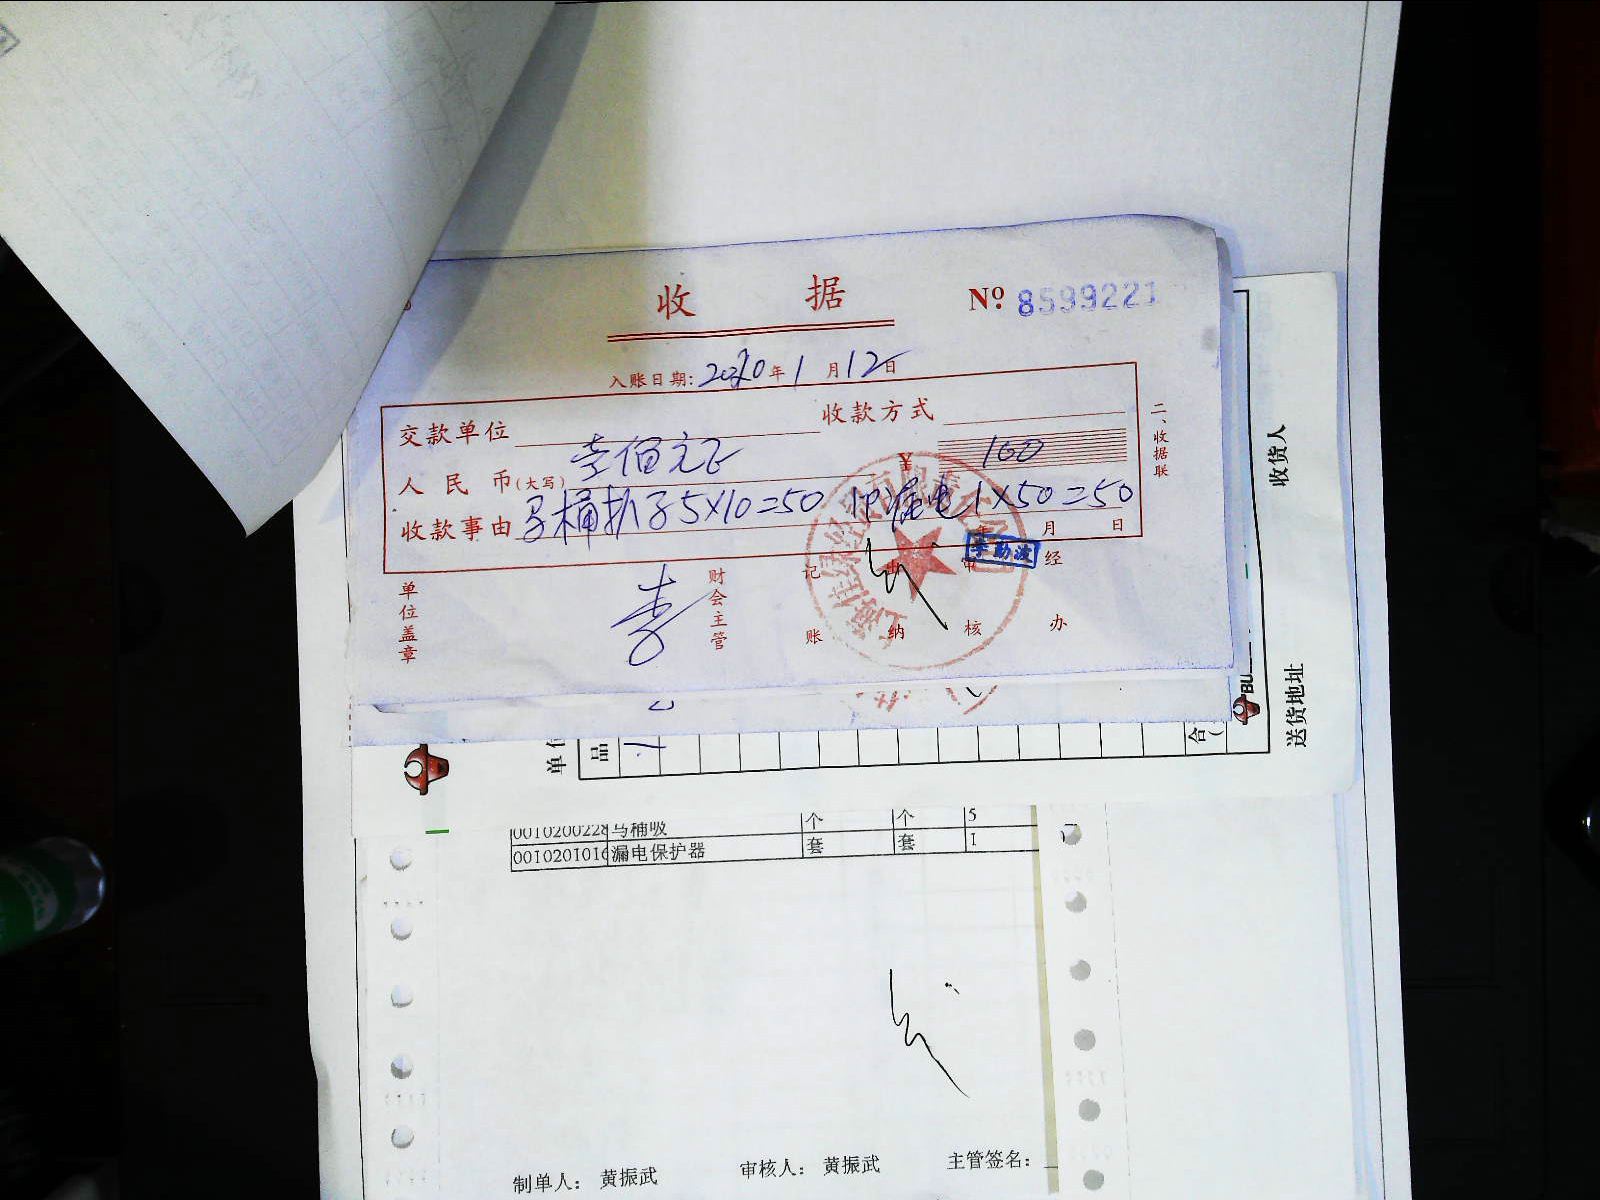 收 据
№ 8599221
入账日期: 2020年1月12日
交款单位
收款方式
人民币(大写) 壹佰元正 ¥ 100
收款事由 马桶扒子5X10=50 漏电1X50=50
年 月 日
李勋波
单位盖章
财会主管
记账
出纳
审核
经办
二、收据联
收货人
送货地址
单位
品
合
0010200228 马桶吸 个 个 5
0010201016 漏电保护器 套 套 1
制单人: 黄振武
审核人: 黄振武
主管签名: